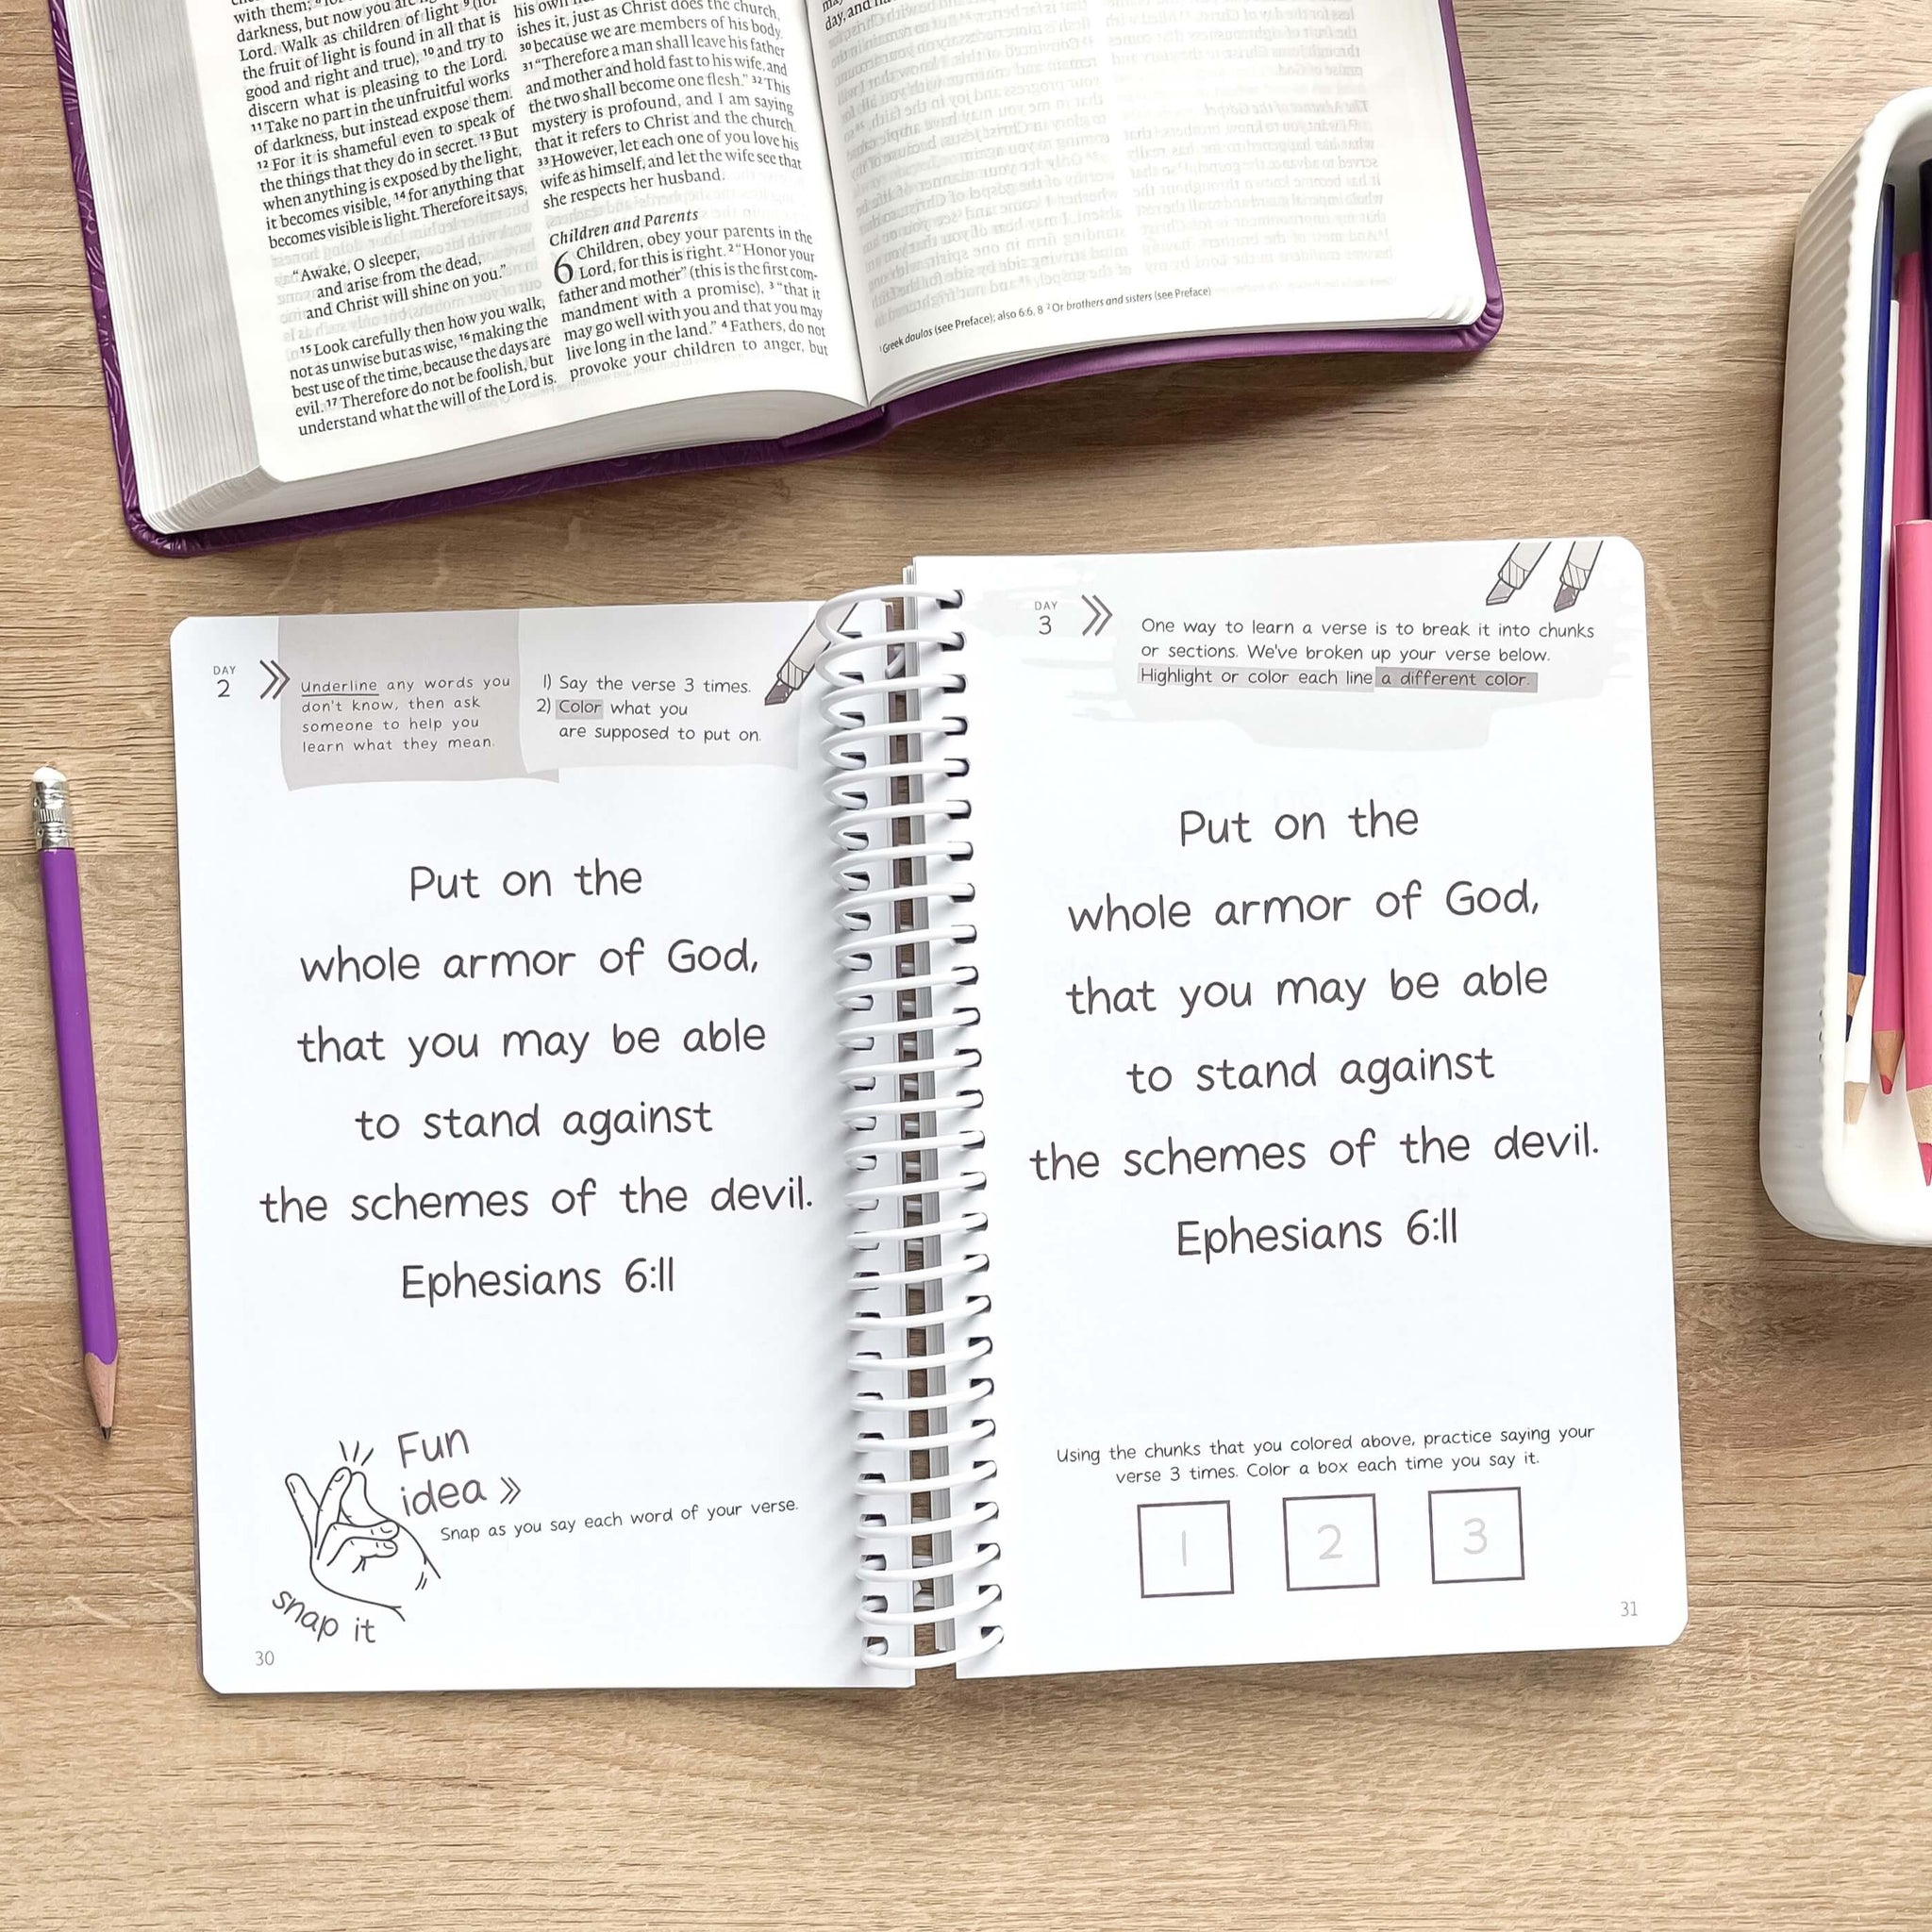 with them;
darkness, but now you are light
Lord. Walk as children of light 9 (for
the fruit of light is found in all that is
good and right and true), 10 and try to
discern what is pleasing to the Lord.
11 Take no part in the unfruitful works
of darkness, but instead expose them.
12 For it is shameful even to speak of
the things that they do in secret. 13 But
when anything is exposed by the light,
it becomes visible, 14 for anything that
becomes visible is light. Therefore it says,
"Awake, O sleeper,
and arise from the dead,
and Christ will shine on you."
15 Look carefully then how you walk,
not as unwise but as wise, 16 making the
best use of the time, because the days are
evil. 17 Therefore do not be foolish, but
understand what the will of the Lord is.
his own
ishes it, just as Christ does the church,
30 because we are members of his body.
31 "Therefore a man shall leave his father
and mother and hold fast to his wife, and
the two shall become one flesh." 32 This
mystery is profound, and I am saying
that it refers to Christ and the church.
33 However, let each one of you love his
wife as himself, and let the wife see that
she respects her husband.
Children and Parents
6 Children, obey your parents in the
Lord, for this is right. 2 "Honor your
father and mother" (this is the first com-
mandment with a promise), 3 "that it
may go well with you and that you may
live long in the land." 4 Fathers, do not
provoke your children to anger, but
day, and
1 Greek doulos (see Preface); also 6:6, 8 2 Or brothers and sisters (see Preface)
DAY
2
Underline any words you
don't know, then ask
someone to help you
learn what they mean.
1) Say the verse 3 times.
2) Color what you
are supposed to put on.
Put on the
whole armor of God,
that you may be able
to stand against
the schemes of the devil.
Ephesians 6:11
Fun
idea
Snap as you say each word of your verse.
snap it
30
DAY
3
One way to learn a verse is to break it into chunks
or sections. We've broken up your verse below.
Highlight or color each line a different color.
Put on the
whole armor of God,
that you may be able
to stand against
the schemes of the devil.
Ephesians 6:11
Using the chunks that you colored above, practice saying your
verse 3 times. Color a box each time you say it.
1 2 3
31